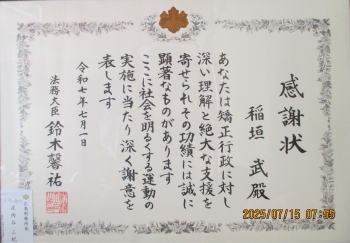 感謝状
稲垣 武殿
あなたは矯正行政に対し
深い理解と絶大な支援を
寄せられその功績には誠に
顕著なものがあります
ここに社会を明るくする運動の
実施に当たり深く謝意を
表します
令和七年七月一日
法務大臣 鈴木馨祐
2025/07/15 07:55